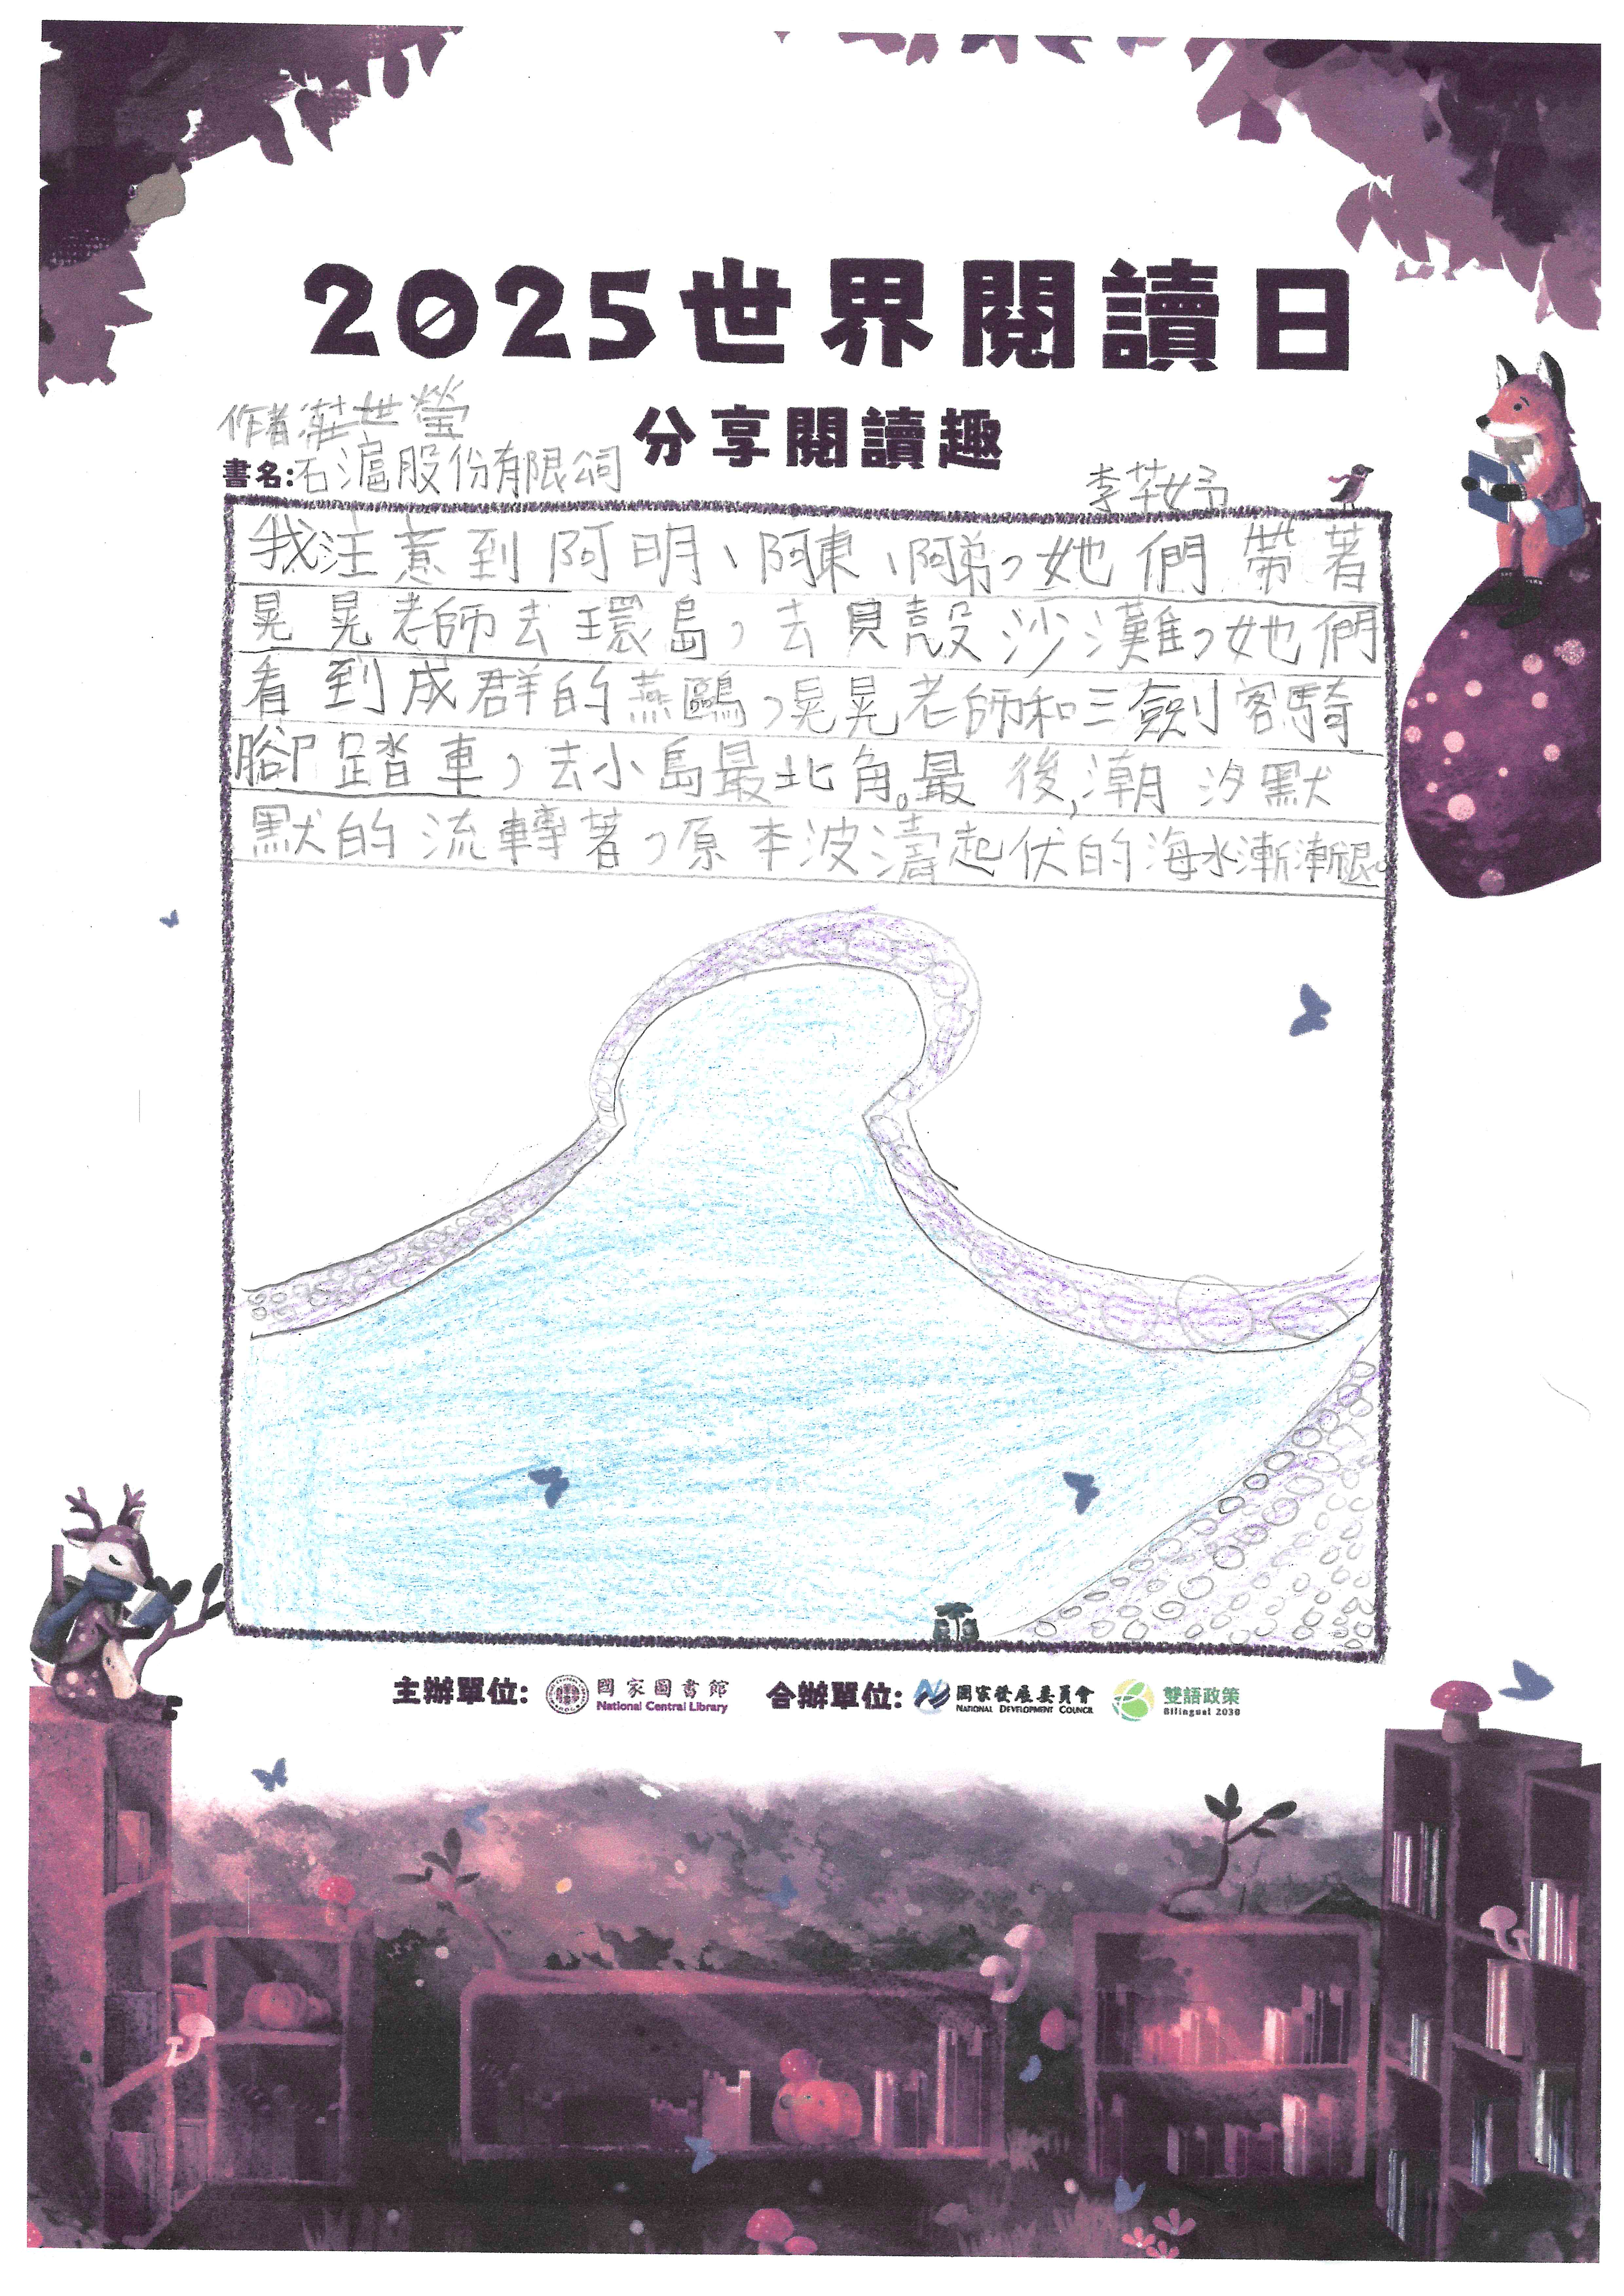 2025世界閱讀日
分享閱讀趣
作者莊世瑩
書名:石滬股份有限公司
李芊妤
我注意到阿明、阿東、阿弟,她們帶著
晃晃老師去環島,去貝殼沙灘,她們
看到成群的燕鷗,晃晃老師和三劍客騎
腳踏車,去小島最北角。最後,潮汐默
默的流轉著,原本波濤起伏的海水漸漸退。
主辦單位: 國家圖書館 合辦單位: 國家發展委員會 雙語政策
National Central Library NATIONAL DEVELOPMENT COUNCIL Bilingual 2030